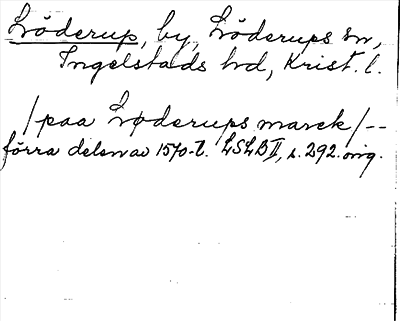 Löderup, by, Löderups sn,
Ingelstads hd, Krist. l.
/paa Løderups marck/--
förra delen av 1570-t. LSLB II, s. 292. orig.